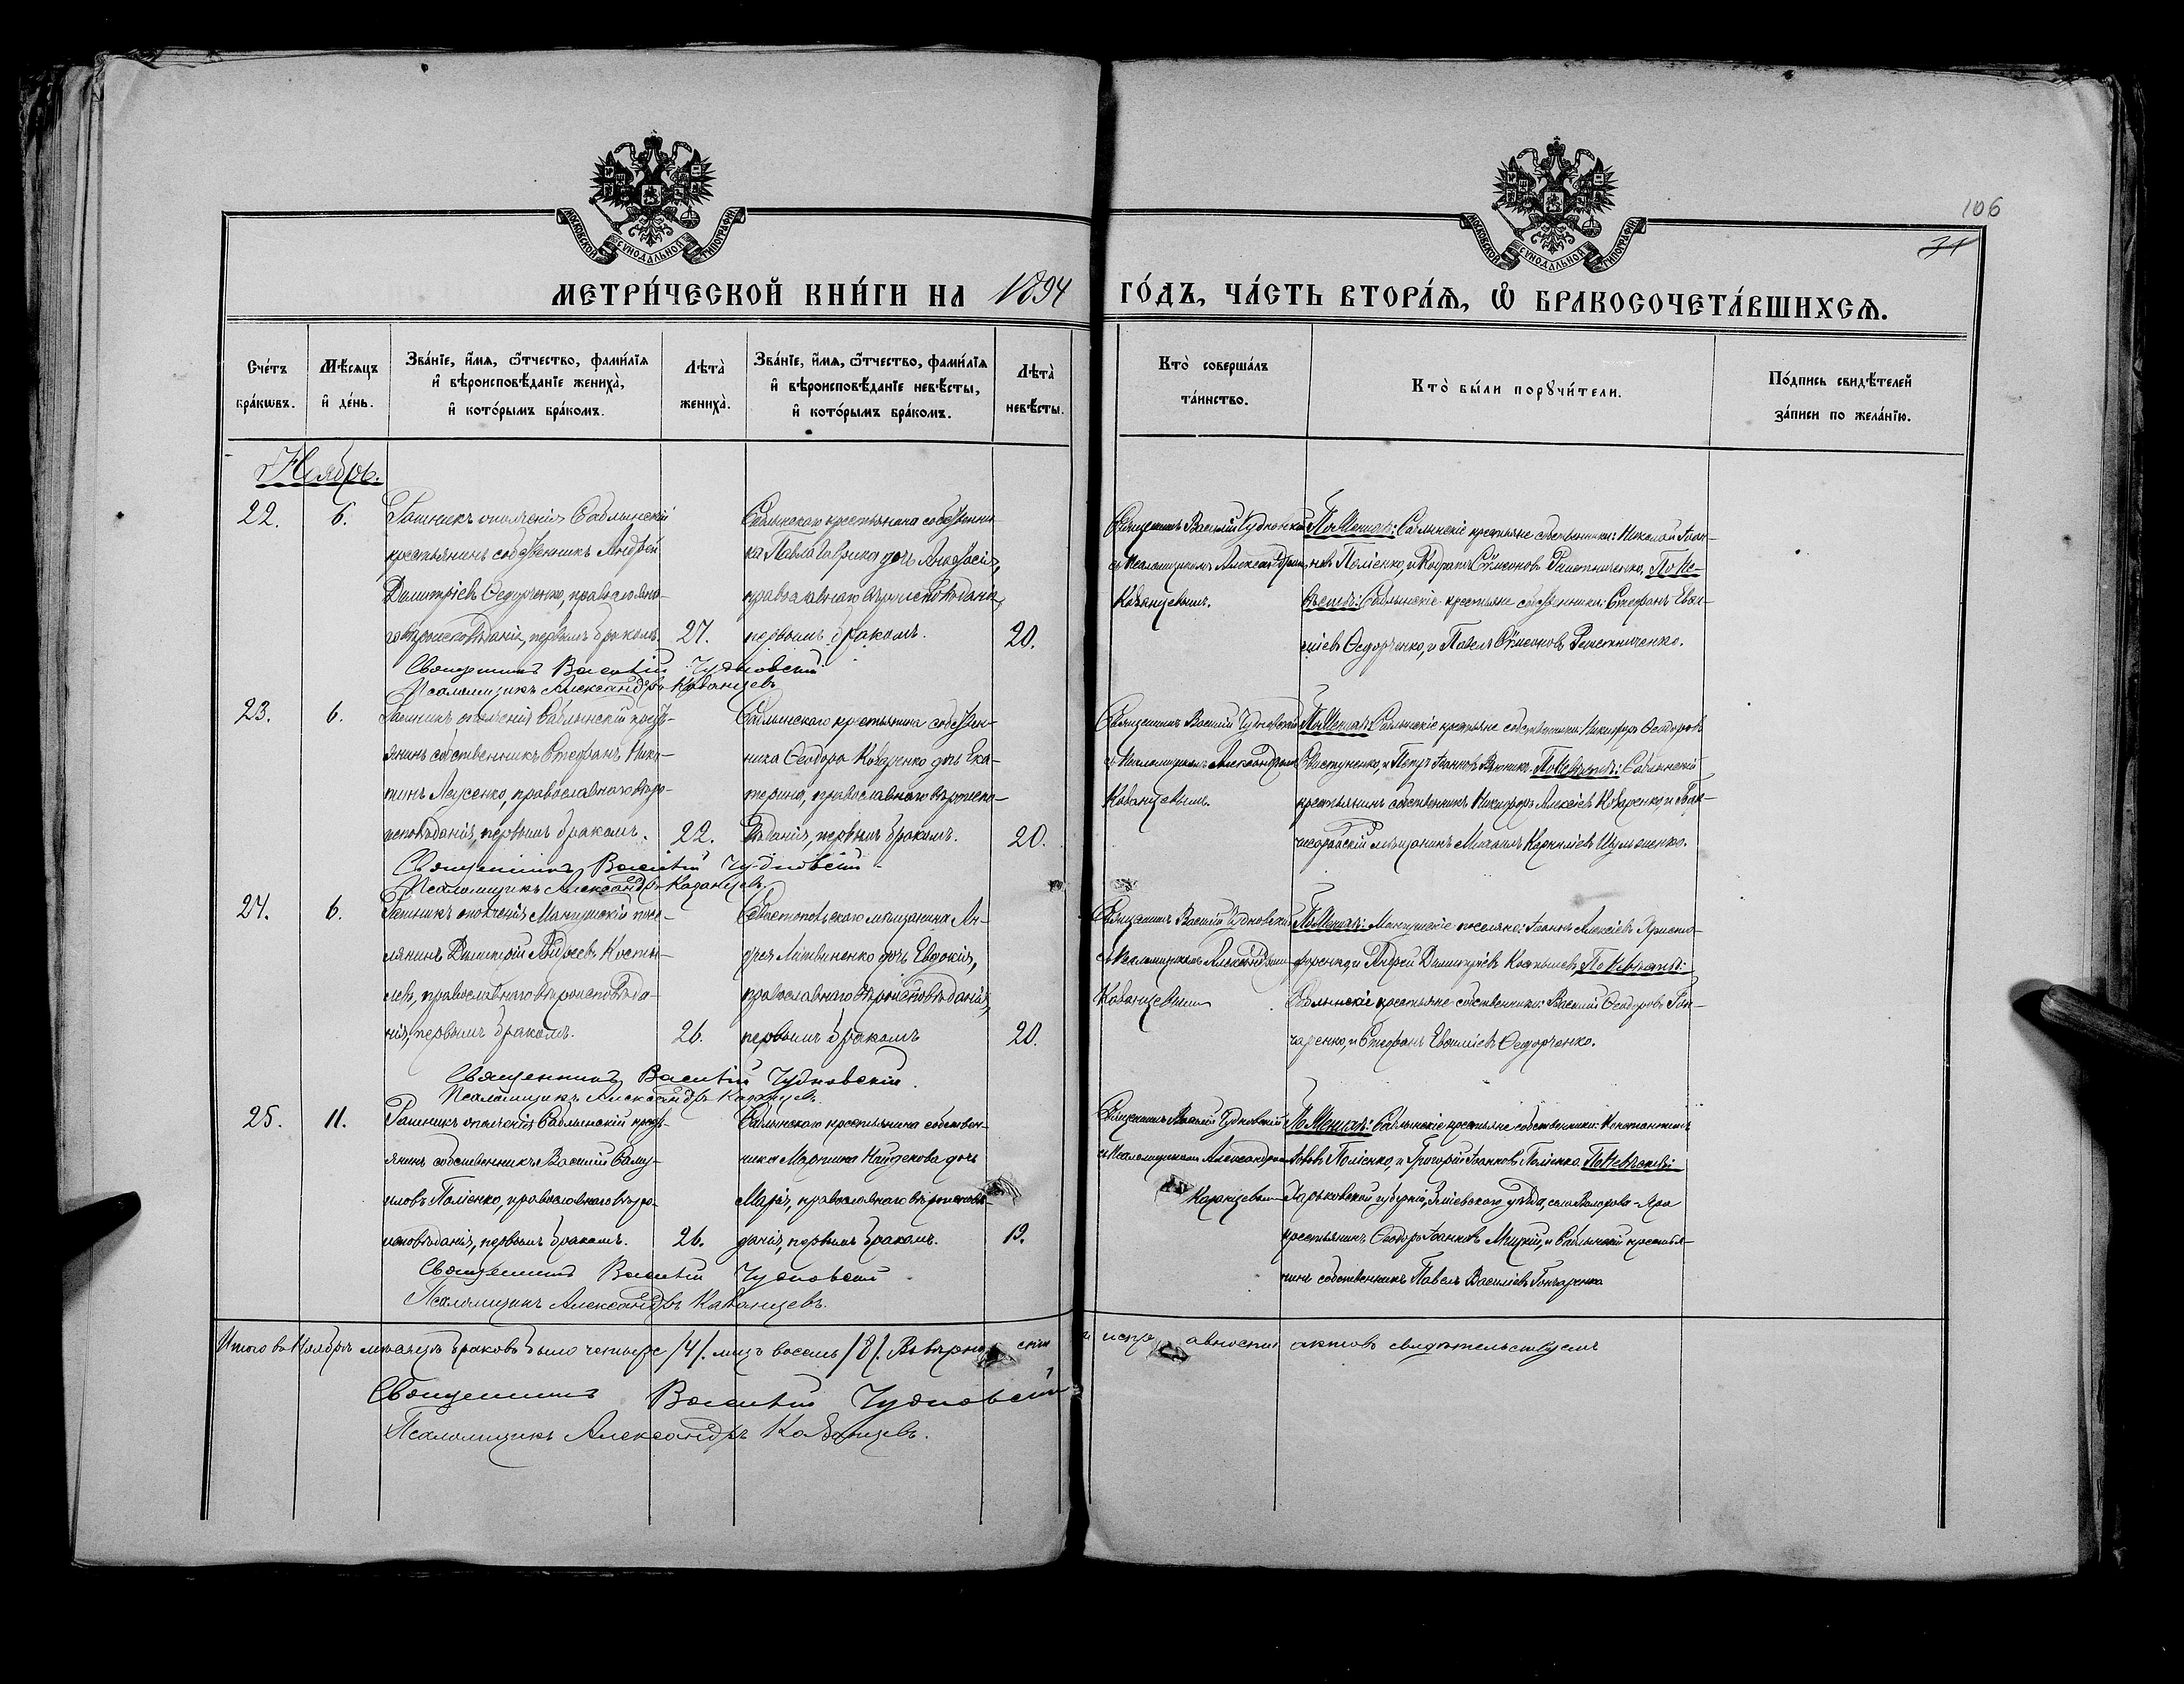 МОСКОВСКОЙ СУНОДАЛЬНОЙ ТИПОГРАФІИ
МОСКОВСКОЙ СУНОДАЛЬНОЙ ТИПОГРАФІИ
106
31
МЕТРИ́ЧЕСКОЙ КНИ́ГИ НА 1894 ГО́ДЪ, ЧА́СТЬ ВТОРА́Ѧ, Ѽ БРАКОСОЧЕТА́ВШИХСѦ.
Сче́тъ бра́кѡвъ.
Мѣ́сѧцъ и҆ де́нь.
Зва́нїе, и҆́мѧ, ѻ҆́тчество, фами́лїѧ и҆ вѣроисповѣ́данїе жениха̀, и҆ кото́рымъ бра́комъ.
Лѣта̀ жениха̀.
Зва́нїе, и҆́мѧ, ѻ҆́тчество, фами́лїѧ и҆ вѣроисповѣ́данїе невѣ́сты, и҆ кото́рымъ бра́комъ.
Лѣта̀ невѣ́сты.
Кто̀ соверша́лъ та́инство.
Кто̀ бы́ли порꙋчи́тели.
По́дпись свидѣ́телей за́писи по жела́нїю.
Ноябрь.
22.
6.
Ратникъ ополченія Саблынскій
крестьянинъ собственникъ Андрей
Димитріевъ Федорченко, православна-
го вѣроисповѣданія, первымъ бракомъ.
27.
Саблынскаго крестьянина собственни-
ка Павла Гаврика дочь Анастасія,
православнаго вѣроисповѣданія,
первымъ бракомъ.
20.
Священникъ Василій Чудновскій
съ Псаломщикомъ Александромъ
Казанцевымъ.
По Женихѣ: Саблынскіе крестьяне собственники: Николай Іоан-
новъ Поліенко, и Кодратъ Сѵмеоновъ Решетниченко. По Не-
вѣстѣ: Саблынскіе крестьяне собственники: Стефанъ Евѳи-
міевъ Федорченко, и Павелъ Сѵмеоновъ Решетниченко.
Священникъ Василій Чудновскій
Псаломщикъ Александръ Казанцевъ
23.
6.
Ратникъ ополченія Саблынскій кресть-
янинъ собственникъ Стефанъ Ники-
тинъ Лаусенко, православнаго вѣро-
исповѣданія, первымъ бракомъ.
22.
Саблынскаго крестьянина собствен-
ника Ѳеодора Коваренко дочь Ека-
терина, православнаго вѣроиспо-
вѣданія, первымъ бракомъ.
20.
Священникъ Василій Чудновскій
съ Псаломщикомъ Александромъ
Казанцевымъ.
По Женихѣ: Саблынскіе крестьяне собственники Никифоръ Ѳеодоровъ
Свистуненко, и Петръ Іоанновъ Вянникъ. По Невѣстѣ: Саблынскій
крестьянинъ собственникъ Никифоръ Алексіевъ Коваренко, и Бах-
чисарайскій мѣщанинъ Михаилъ Корниліевъ Шульженко.
Священникъ Василій Чудновскій
Псаломщикъ Александръ Казанцевъ.
24.
6.
Ратникъ ополченія Мангушскій посе-
лянинъ Димитрій Андреевъ Косты-
левъ, православнаго вѣроисповѣда-
нія, первымъ бракомъ.
26.
Севастопольскаго мѣщанина Ан-
дрея Литвиненко дочь Евдокія,
православнаго вѣроисповѣданія,
первымъ бракомъ
20.
Священникъ Василій Чудновскій
съ Псаломщикомъ Александромъ
Казанцевымъ
По Женихѣ: Мангушскіе поселяне: Іоаннъ Алексіевъ Христо-
форенко, и Андрей Димитріевъ Костылевъ. По Невѣстѣ:
Саблынскіе крестьяне собственники: Василій Ѳеодоровъ Гон-
чаренко, и Стефанъ Евѳиміевъ Федорченко.
Священникъ Василій Чудновскій.
Псаломщикъ Александръ Казанцевъ.
25.
11.
Ратникъ ополченія Саблынскій кресть-
янинъ собственникъ Василій Саму-
иловъ Поліенко, православнаго вѣро-
исповѣданія, первымъ бракомъ.
26.
Саблынскаго крестьянина собствен-
ника Мартина Найденова дочь
Марія, православнаго вѣроисповѣ-
данія, первымъ бракомъ.
19.
Священникъ Василій Чудновскій
съ Псаломщикомъ Александромъ
Казанцевымъ
По Женихѣ: Саблынскіе крестьяне собственники: Константинъ
Поліенко, и Григорій Іоанновъ Поліенко. По Невѣстѣ:
Харьковской губерніи, Зміевскаго уѣзда, села
крестьянинъ Ѳеодоръ Іоанновъ Мицкій, и Саблынскій крестья-
нинъ собственникъ Павелъ Василіевъ Гончаренко
Священникъ Василій Чудновскій
Псаломщикъ Александръ Казанцевъ.
Итого въ Ноябрѣ мѣсяцѣ браковъ было четыре /4/. лицъ восемь /8/. Въ вѣрности и исправности актовъ свидѣтельствуемъ
Священникъ Василій Чудновскій
Псаломщикъ Александръ Казанцевъ.